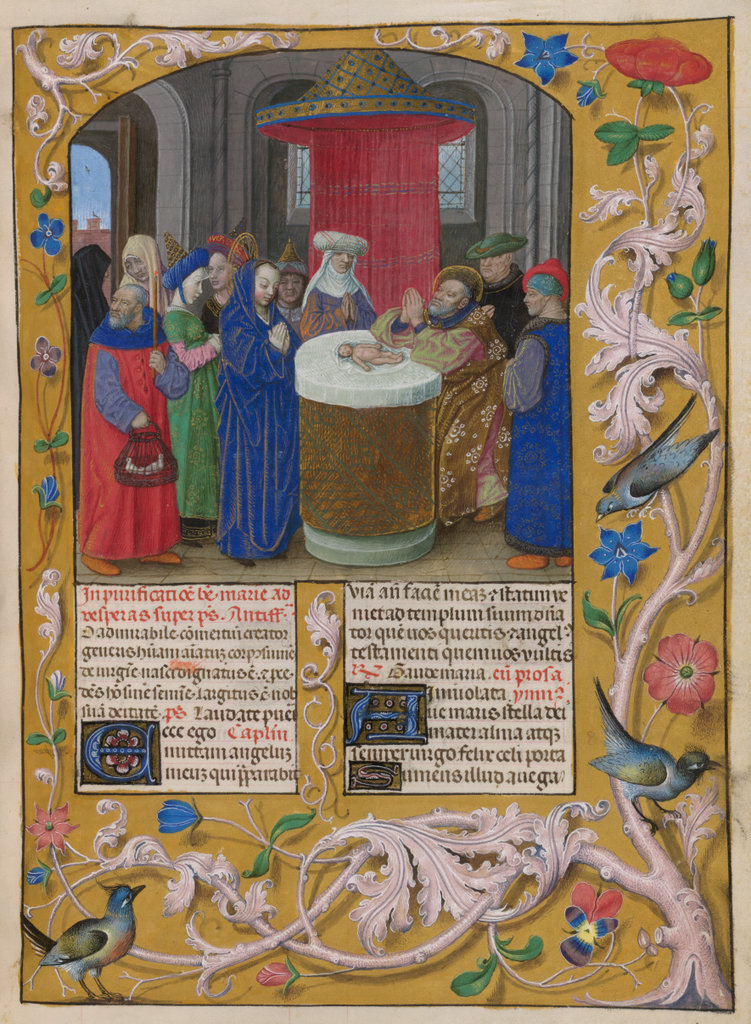 In purificatiōe bē marie ad
vesperas super ps. Antiff
O admirabile cōmertiū creator
generis hūani aīatuz corpꝰ sume
de virgīe nasci dignatus ē et p̄ce
dēs hō sine semīe largitus ē nob
suā deitatē. ps Laudate pueri
Ecce ego Caplm
mittam angeluz
meuz qui p̄parabit
viā an̄ faciē meaz ⁊ statim ve
niet ad templum suum dn̄a
tor quē uos queritis ⁊ angelꝰ
testamenti quem uos vultis
R Gaude maria. cū prosa
Inuiolata. ymnꝰ
Aue maris stella dei
mater alma atqz
semper uirgo felix celi porta
Sumens illud aue ga